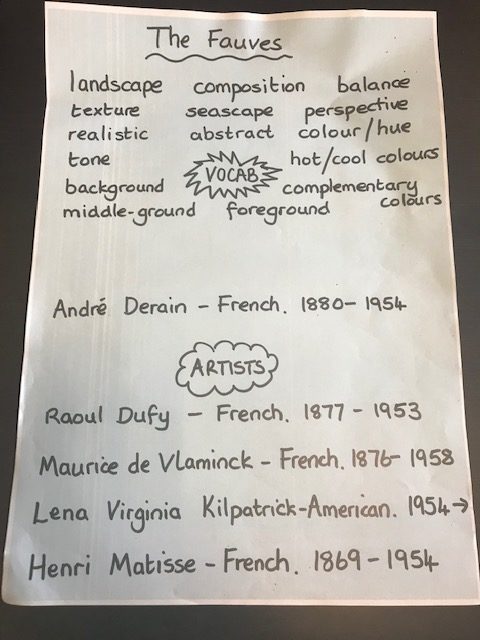 The Fauves
landscape composition balance
texture seascape perspective
realistic abstract colour/hue
tone VOCAB hot/cool colours
background complementary colours
middle-ground foreground
André Derain – French. 1880 – 1954
ARTISTS
Raoul Dufy – French. 1877 – 1953
Maurice de Vlaminck – French. 1876 – 1958
Lena Virginia Kilpatrick – American. 1954 →
Henri Matisse – French. 1869 – 1954